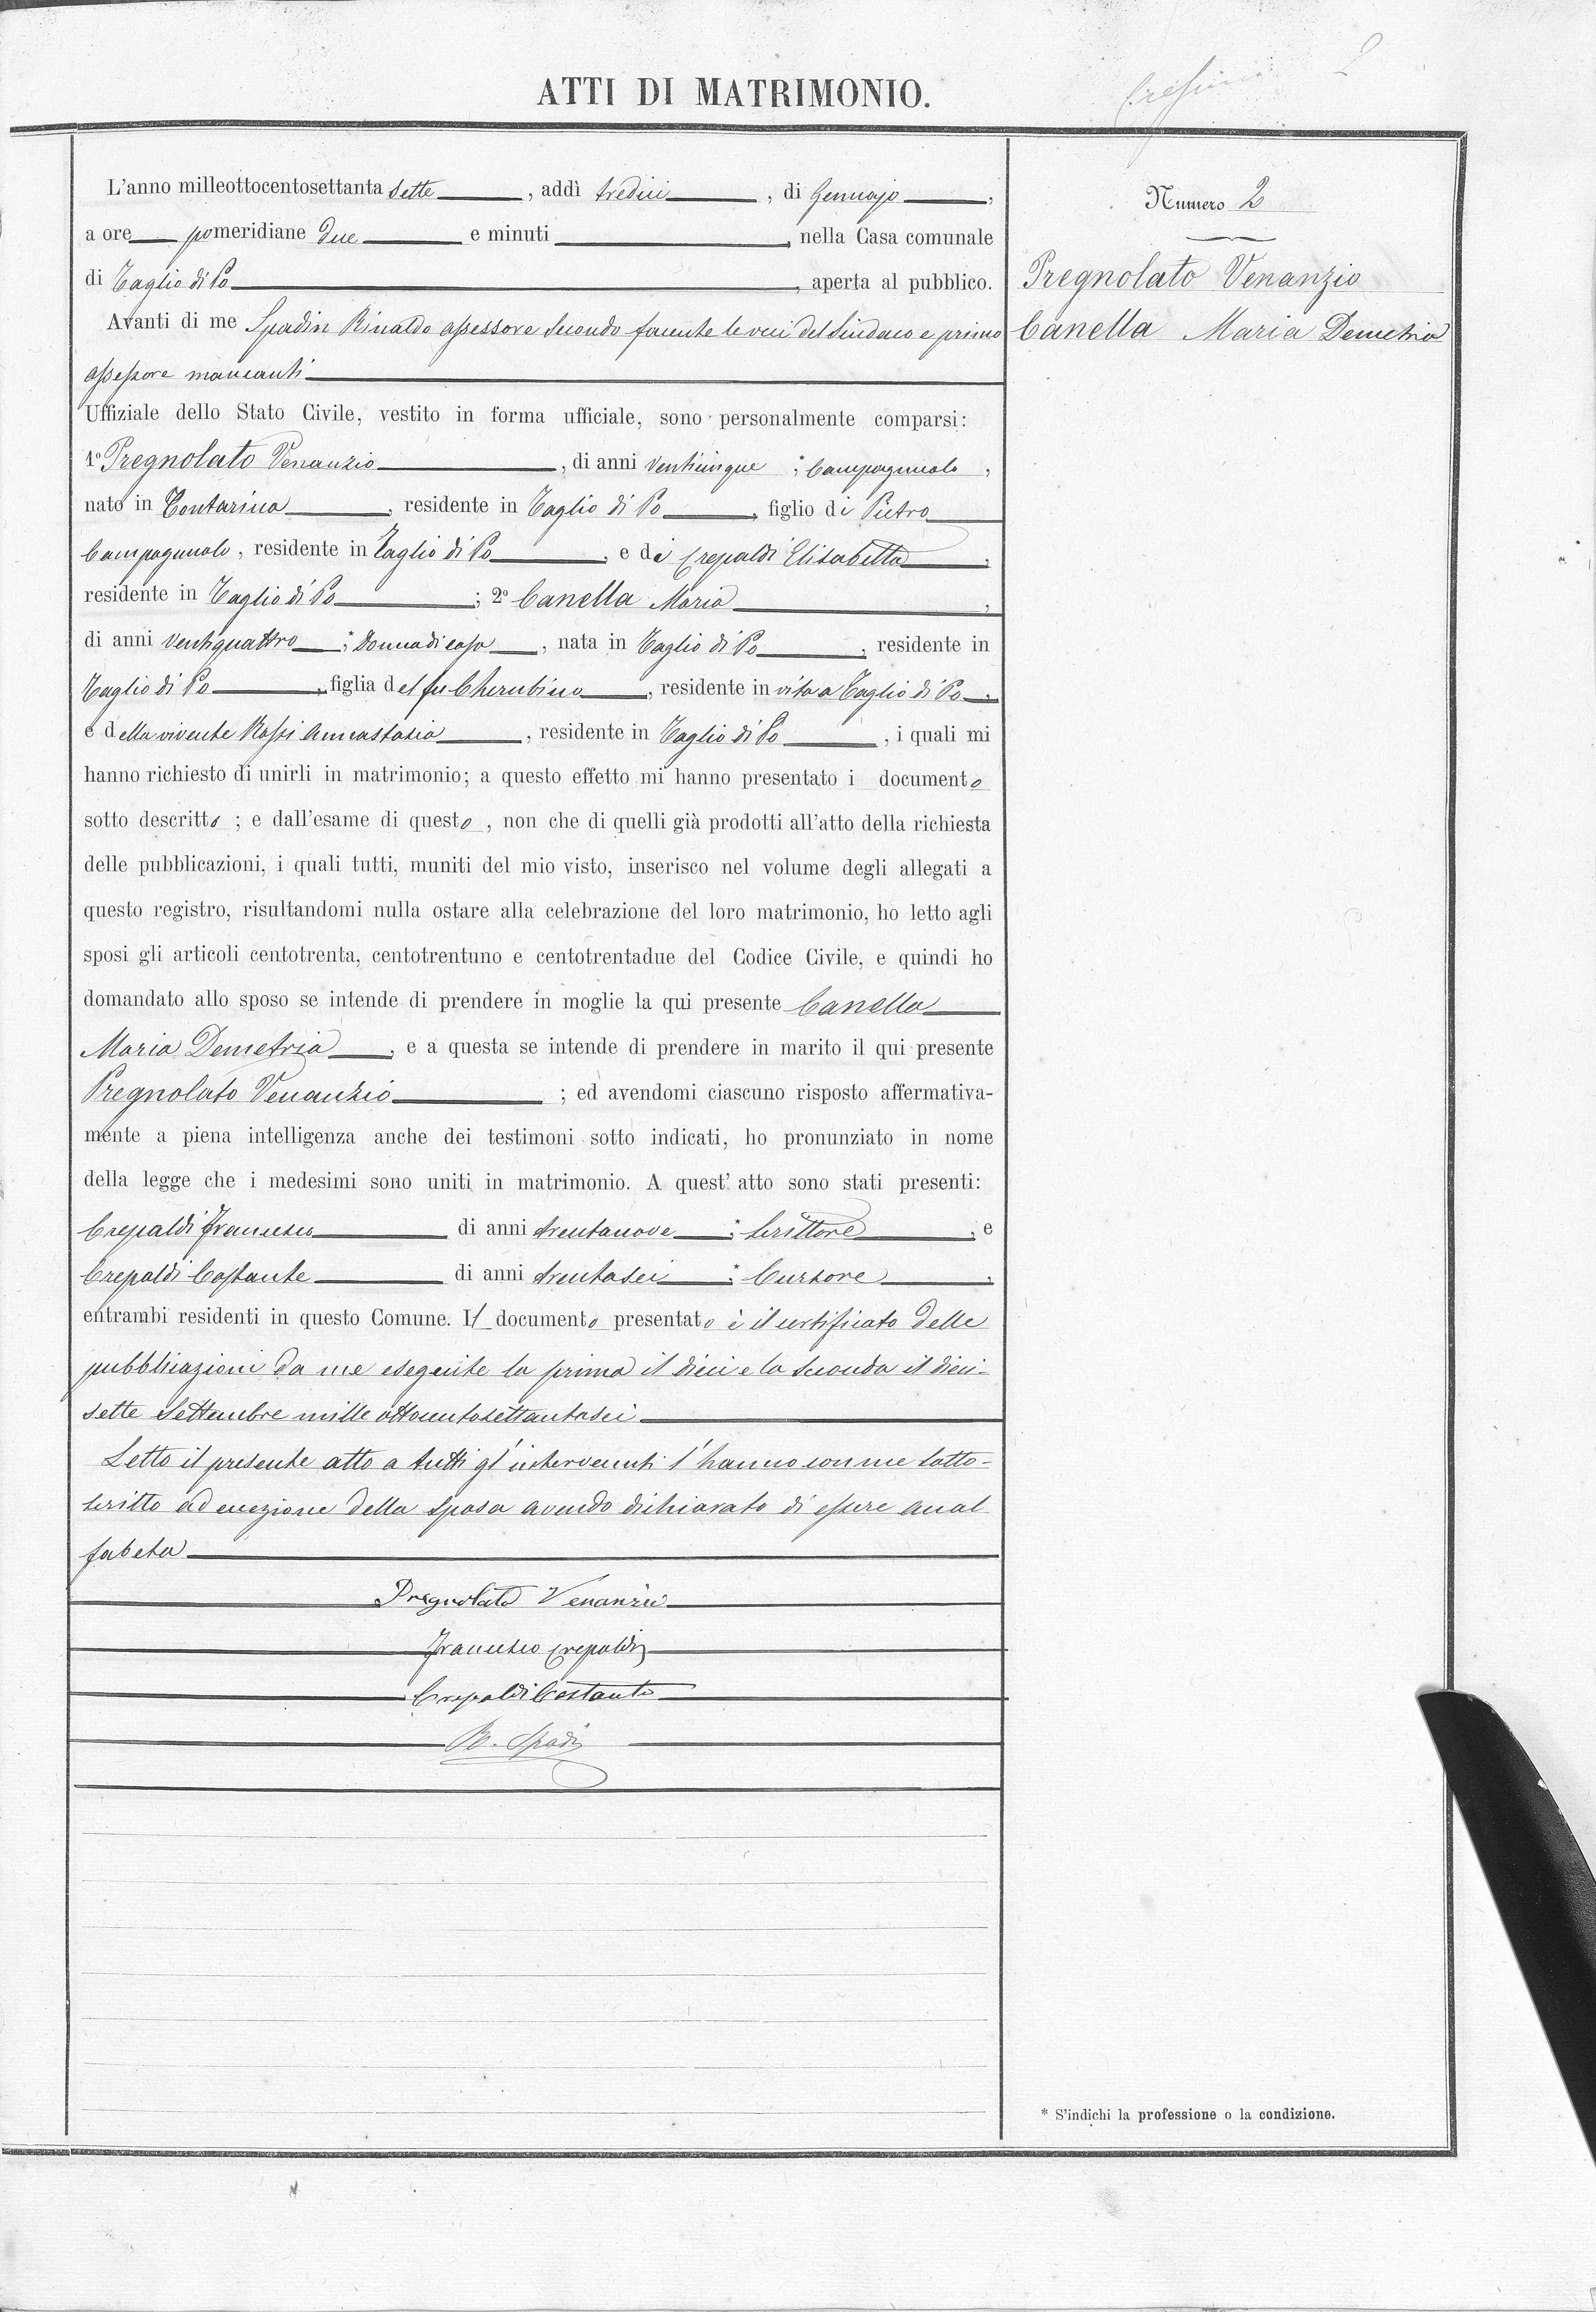 ATTI DI MATRIMONIO.
2
L'anno milleottocentosettanta sette, addì tredici, di Gennajo,
a ore pomeridiane due e minuti, nella Casa comunale
di Taglio di Po, aperta al pubblico.
Avanti di me Spadin Rinaldo assessore secondo facente le veci del Sindaco e primo
assessore mancanti
Uffiziale dello Stato Civile, vestito in forma ufficiale, sono personalmente comparsi:
1º Pregnolato Venanzio, di anni venticinque; * Campagnuolo,
nato in Contarina, residente in Taglio di Po, figlio di Pietro
Campagnuolo, residente in Taglio di Po, e di Crepaldi Elisabetta,
residente in Taglio di Po; 2º Canella Maria,
di anni ventiquattro; * Donna di casa, nata in Taglio di Po, residente in
Taglio di Po, figlia del fu Cherubino, residente in vita a Taglio di Po,
e della vivente Rossi Annastasia, residente in Taglio di Po, i quali mi
hanno richiesto di unirli in matrimonio; a questo effetto mi hanno presentato i documento
sotto descritto; e dall'esame di questo, non che di quelli già prodotti all'atto della richiesta
delle pubblicazioni, i quali tutti, muniti del mio visto, inserisco nel volume degli allegati a
questo registro, risultandomi nulla ostare alla celebrazione del loro matrimonio, ho letto agli
sposi gli articoli centotrenta, centotrentuno e centotrentadue del Codice Civile, e quindi ho
domandato allo sposo se intende di prendere in moglie la qui presente Canella
Maria Demetria, e a questa se intende di prendere in marito il qui presente
Pregnolato Venanzio; ed avendomi ciascuno risposto affermativa-
mente a piena intelligenza anche dei testimoni sotto indicati, ho pronunziato in nome
della legge che i medesimi sono uniti in matrimonio. A quest' atto sono stati presenti:
Crepaldi Francesco di anni trentanove; * Scrittore, e
Crepaldi Costante di anni trentasei; * Cursore,
entrambi residenti in questo Comune. Il documento presentato è il certificato delle
pubblicazioni da me eseguite la prima il dieci e la seconda il dieci-
sette Settembre mille ottocentosettantasei
Letto il presente atto a tutti gl'intervenuti l'hanno con me sotto-
scritto ad eccezione della sposa avendo dichiarato di essere anal
fabeta
Pregnolato Venanzio
Francesco Crepaldi
Crepaldi Costante
R. Spadin
Numero 2
Pregnolato Venanzio
Canella Maria Demetria
* S'indichi la professione o la condizione.